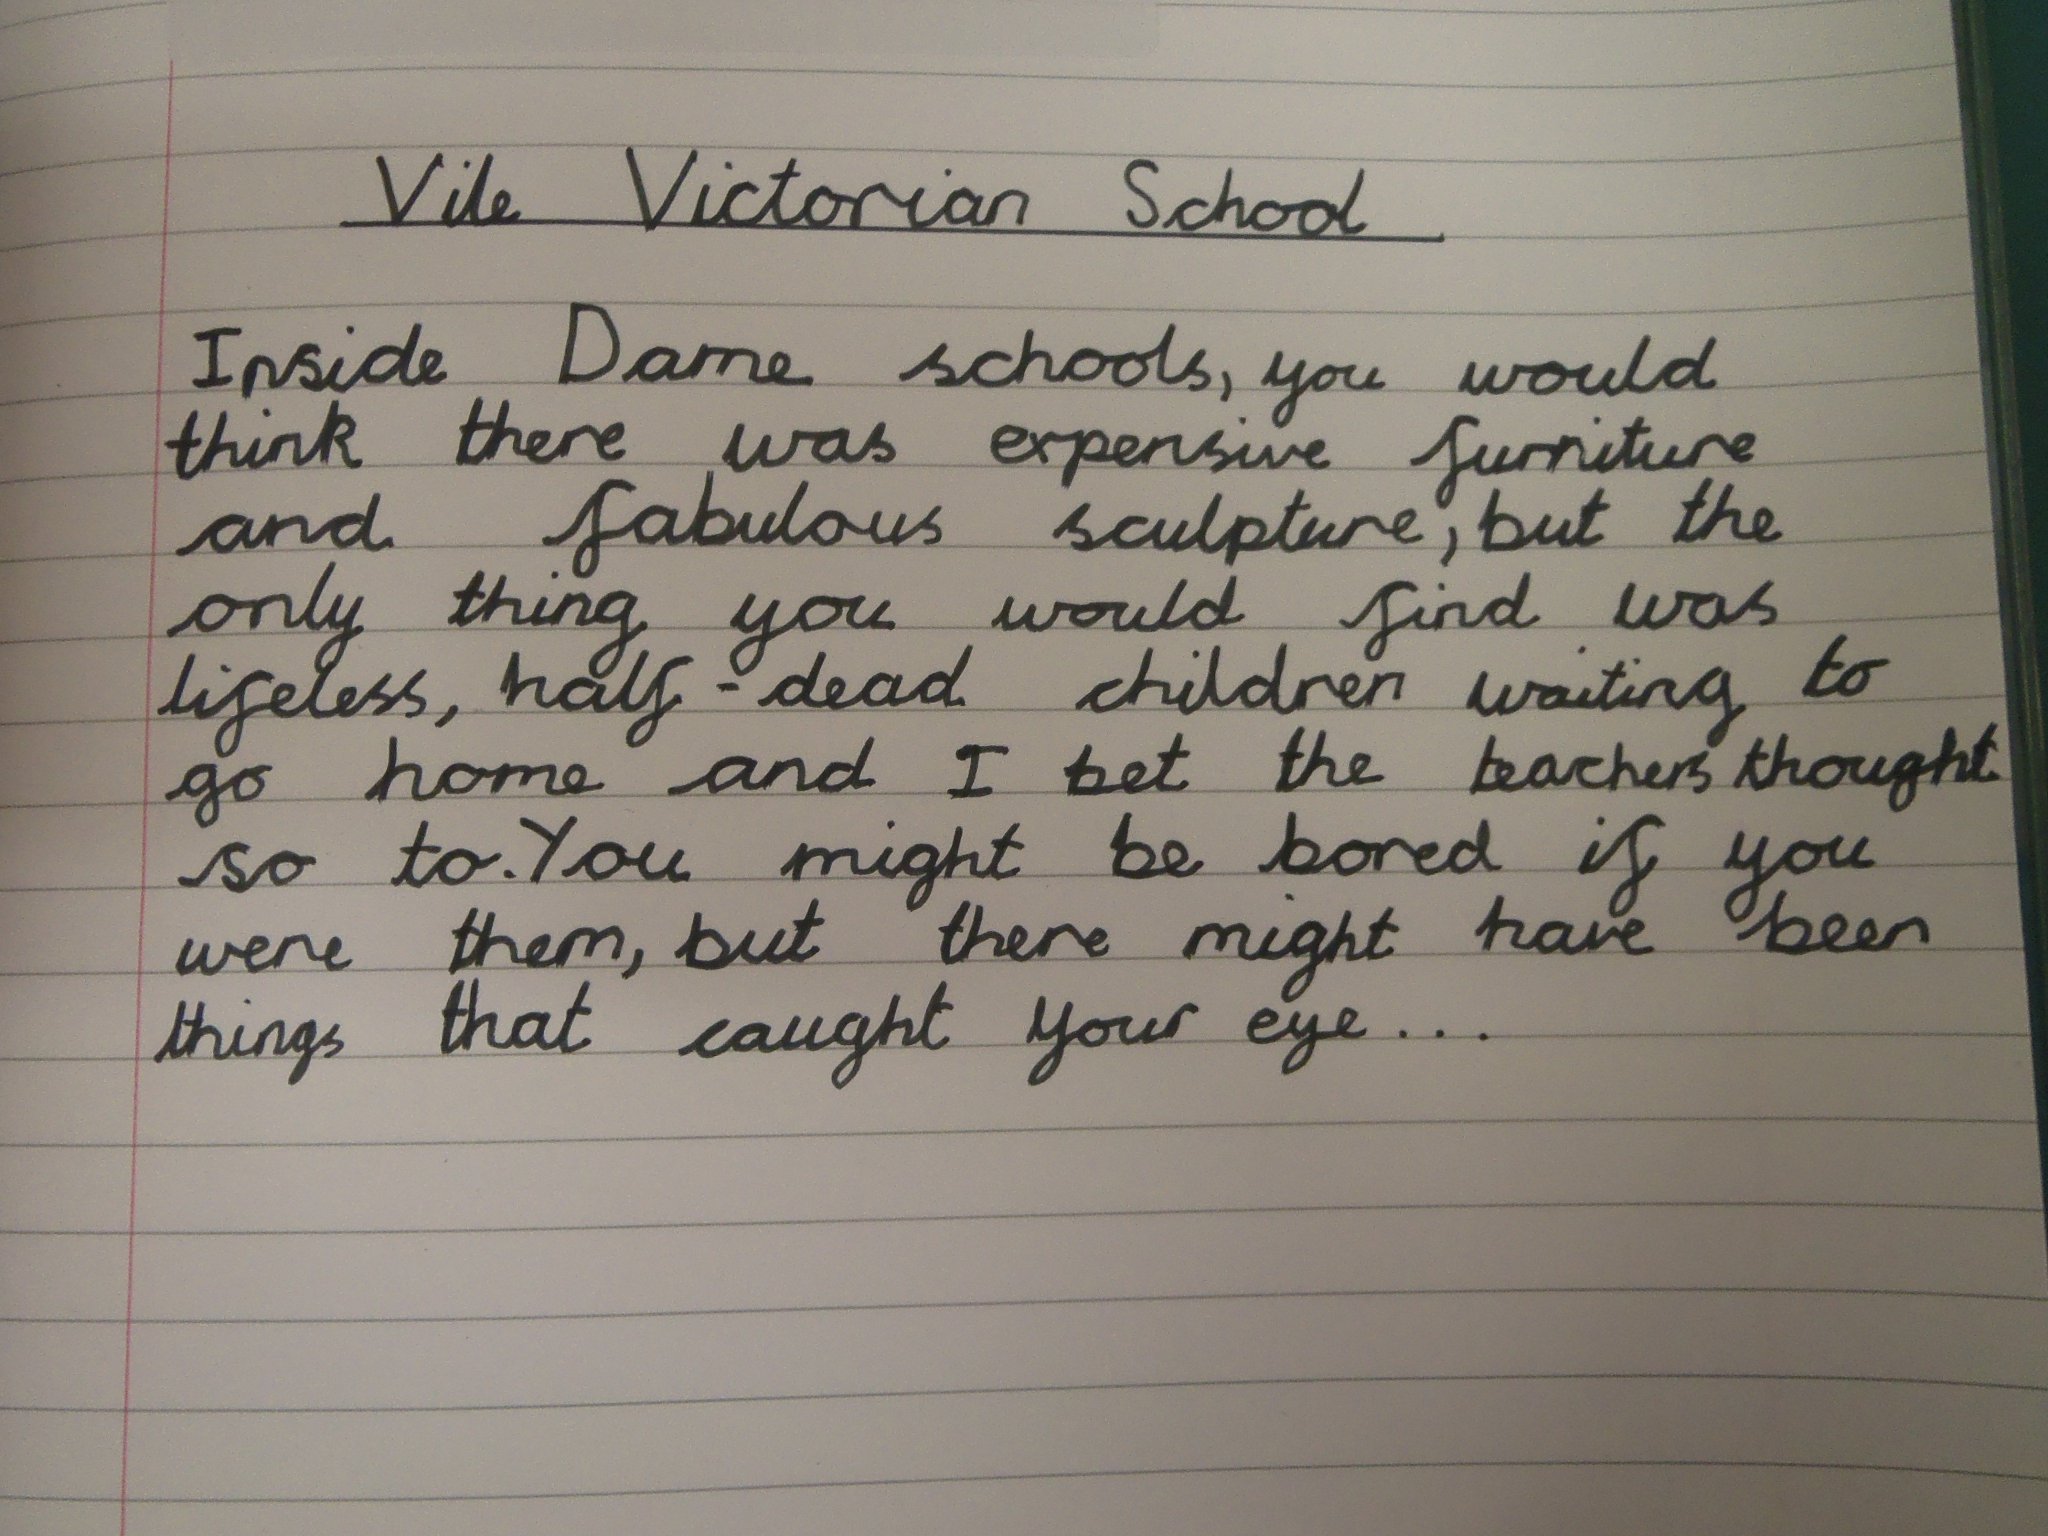 Vile Victorian School
Inside Dame schools, you would
think there was expensive furniture
and fabulous sculpture, but the
only thing you would find was
lifeless, half-dead children waiting to
go home and I bet the teachers thought
so to. You might be bored if you
were them, but there might have been
things that caught your eye...